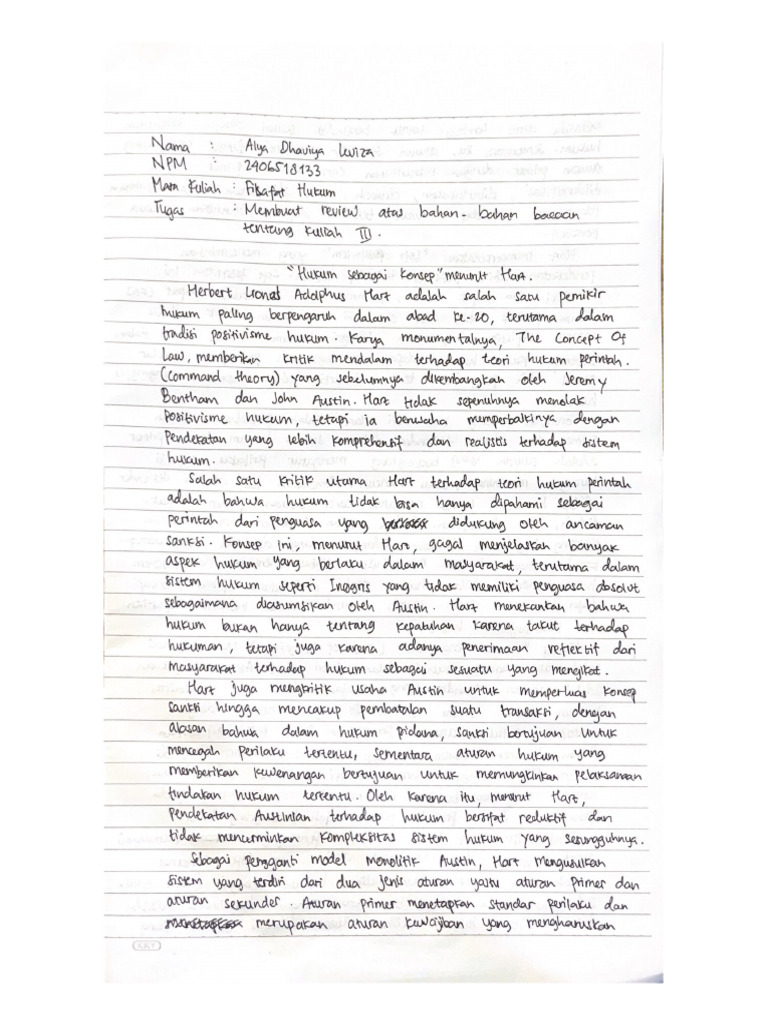 Nama : Alya Dhaviya Leviza
NPM : 2406518133
Mata Kuliah : Filsafat Hukum
Tugas : Membuat review atas bahan-bahan bacaan
tentang kuliah III.
"Hukum sebagai Konsep" menurut Hart.
Herbert Lionel Adolphus Hart adalah salah satu pemikir
hukum paling berpengaruh dalam abad ke-20, terutama dalam
tradisi positivisme hukum. Karya monumentalnya, The Concept Of
Law, memberikan kritik mendalam terhadap teori hukum perintah.
(command theory) yang sebelumnya dikembangkan oleh Jeremy
Bentham dan John Austin. Hart tidak sepenuhnya menolak
positivisme hukum, tetapi ia berusaha memperbaikinya dengan
pendekatan yang lebih komprehensif dan realistis terhadap sistem
hukum.
Salah satu kritik utama Hart terhadap teori hukum perintah
adalah bahwa hukum tidak bisa hanya dipahami sebagai
perintah dari penguasa yang didukung oleh ancaman
sanksi. Konsep ini, menurut Hart, gagal menjelaskan banyak
aspek hukum yang berlaku dalam masyarakat, terutama dalam
sistem hukum seperti Inggris yang tidak memiliki penguasa absolut
sebagaimana diasumsikan oleh Austin. Hart menekankan bahwa
hukum bukan hanya tentang kepatuhan karena takut terhadap
hukuman, tetapi juga karena adanya penerimaan reflektif dari
masyarakat terhadap hukum sebagai sesuatu yang mengikat.
Hart juga mengkritik usaha Austin untuk memperluas konsep
sanksi hingga mencakup pembatalan suatu transaksi, dengan
alasan bahwa dalam hukum pidana, sanksi bertujuan untuk
mencegah perilaku tertentu, sementara aturan hukum yang
memberikan kewenangan bertujuan untuk memungkinkan pelaksanaan
tindakan hukum tertentu. Oleh karena itu, menurut Hart,
pendekatan Austinian terhadap hukum bersifat reduktif dan
tidak mencerminkan kompleksitas sistem hukum yang sesungguhnya.
Sebagai pengganti model monolitik Austin, Hart mengusulkan
sistem yang terdiri dari dua jenis aturan yaitu aturan primer dan
aturan sekunder. Aturan primer menetapkan standar perilaku dan
merupakan aturan kewajiban yang mengharuskan